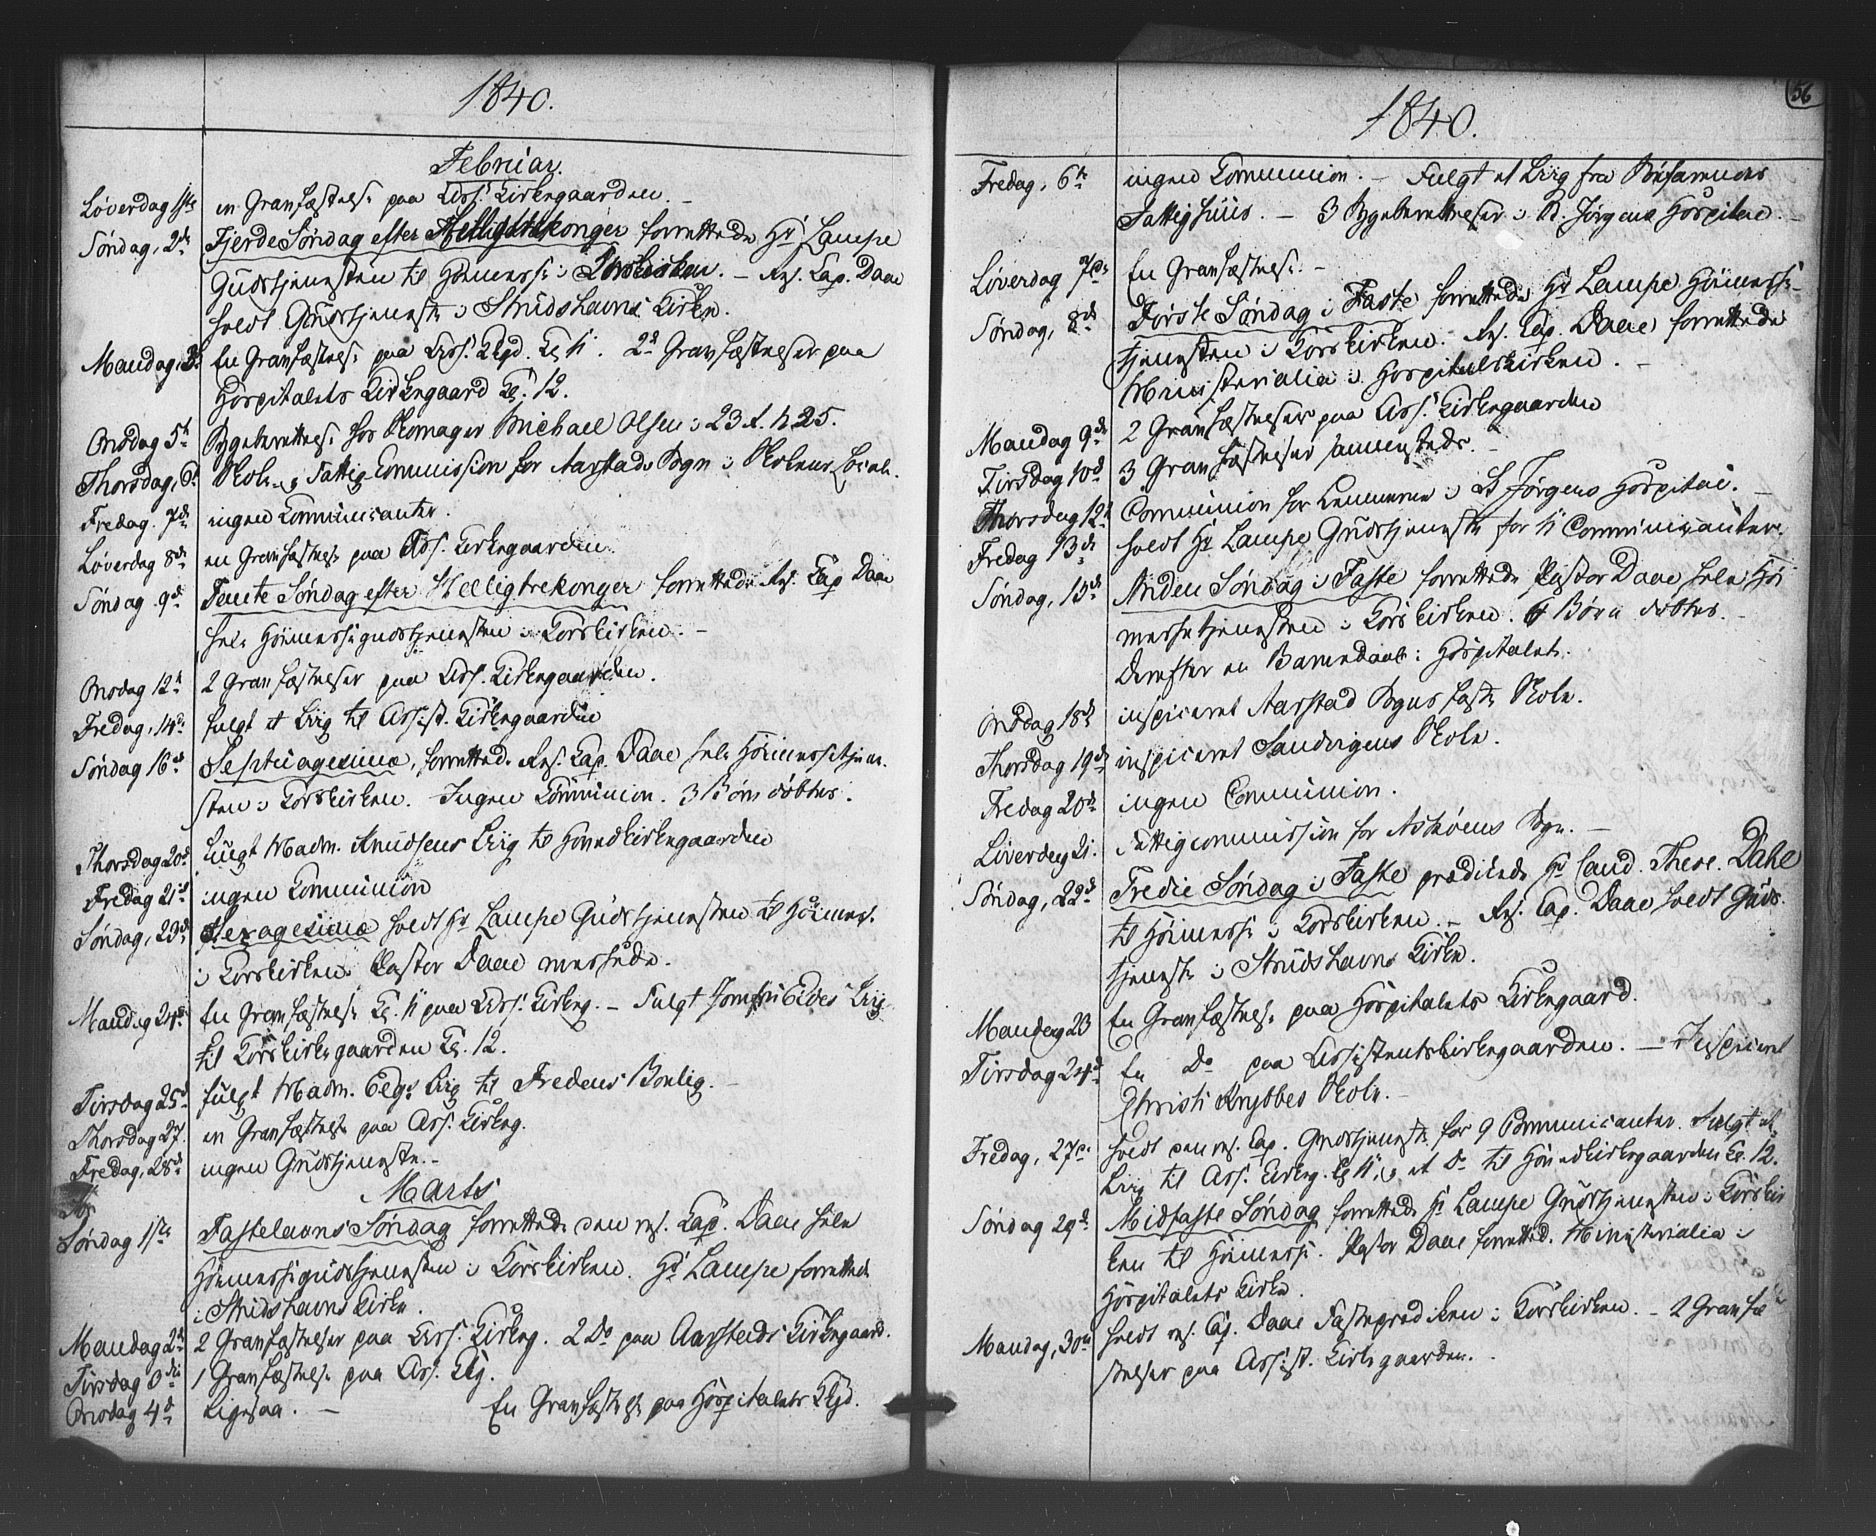 1840.
Februar.
Løverdag 1ste en Gravfæstelse paa Ass. Kirkegaarden. –
Søndag, 2den Fjerde Søndag efter Helligtrekonger forrettede Hr Lampe
Gudstjenesten til Höimesse i Korskirken. – Res. Cap. Daae
holdt Gudstjeneste i Strudshavns Kirke.
Mandag, 3. En Gravfæstelse paa Ass. Kkgd. Kl. 11. 2de Gravfæstelser paa
Hospitalets Kirkegaard Kl. 12.
Onsdag 5te Sygeberettelse hos Skomager Michael Olsen i 23 R. N 25.
Thorsdag, 6. Skole- og Fattig-Commission for Aarstads Sogn i Skolens Local.
Fredag. 7de ingen Communicanter.
Løverdag 8de en Gravfæstelse paa Ass. Kirkegaarden.
Søndag 9de Femte Søndag efter Helligtrekonger forrettede Res. Cap Daae
hele Höimessegudstjenesten i Korskirken. –
Onsdag 12te 2 Gravfæstelser paa Ass. Kirkegaarden.
Fredag, 14de fulgt et Liig til Assist. Kirkegaarden
Søndag 16de Septuagesima, forrettede Res. Cap. Daae hele Höimessetjene-
sten i Korskirken. Ingen Communion. 3 Börn döbtes.
Thorsdag 20de fulgt Madm. Knudsens Liig til Hovedkirkegaarden
Fredag 21de ingen Communion
Søndag, 23de Sexagesima holdt Hr Lampe Gudstjenesten til Höimesse
i Korskirken. Pastor Daae messede.
Mandag 24de En Gravfæstelse Kl. 11 paa Ass. Kirkeg. – Fulgt Jomfru Liig
til Korskirkegaarden Kl. 12.
Tirsdag 25de fulgt Madm. Liig til Fredens Bolig. –
Thorsdag 27. en Gravfæstelse paa Ass. Kirkeg.
Fredag, 28de ingen Gudstjeneste. –
Marts
Søndag 1ste Fastelavns Søndag forrettede den res. Cap. Daae hele
Höimessegudstjenesten i Korskirken. Hr Lampe forrettede
i Strudshavns Kirke.
Mandag 2den 2 Gravfæstelser paa Ass. Kirkeg. 2 Do paa Aarstads Kirkegaard.
Tirsdag 3die 1 Gravfæstelse paa Ass. Kkg.
Onsdag 4de Ligesaa. – En Gravfæstelse paa Hospitalets Kkgd.
56
1840.
Fredag, 6te ingen Communion. – Fulgt et Liig fra
Fattighuus. – 3 Sygeberettelser i St. Jørgens Hospital. –
Løverdag 7de En Gravfæstelse. –
Søndag, 8de Første Søndag i Faste forrettede Hr Lampe Höimesse-
tjenesten i Korskirken. Res. Cap. Daae forrettede
Ministerialia i Hospitalskirken. –
Mandag 9de 2 Gravfæstelser paa Ass. Kirkegaarden
Tirsdag 10de 3 Gravfæstelser sammesteds. –
Thorsdag 12te Communion for Lemmerne i St Jørgens Hospital. –
Fredag 13de holdt Hr Lampe Gudstjeneste for 11 Communicanter.
Søndag, 15de Anden Søndag i Faste forrettede Pastor Daae hele Höi
messetjenesten i Korskirken. 4 Børn döbtes. –
Derefter en Barnedaab i Hospitalet.
Onsdag 18de inspiceret Aarstad Sogns faste Skole.
Thorsdag 19de inspiceret Sandvigens Skole.
Fredag 20de ingen Communion.
Løverdag 21. Fattigcommission for Askøens Sogn. –
Søndag, 22de Tredie Søndag i Faste prædikede Hr Cand. Theol. Dahl
til Höimesse i Korskirken. – Res. Cap. Daae holdt Guds-
tjeneste i Strudshavns Kirke.
Mandag 23 En Gravfæstelse paa Hospitalets Kirkegaard.
Tirsdag 24de En Do paa Assistentskirkegaarden. – Inspiceret
Christi Krybbes Skole. –
Fredag, 27de holdt den res. Cap. Gudstjeneste for 9 Communicanter. Fulgt et
Liig til Ass. Kirkeg. Kl 11, og et Do til Hovedkirkegaarden Kl. 12.
Søndag 29de Midfaste Søndag forrettede Hr Lampe Gudstjenesten i Korskir
ken til Höimesse. Pastor Daae forrettede Ministerialia i
Hospitalets Kirke.
Mandag, 30te holdt res. Cap. Daae Fasteprædiken i Korskirken. – 2 Gravfæ
stelser paa Assist. Kirkegaarden.